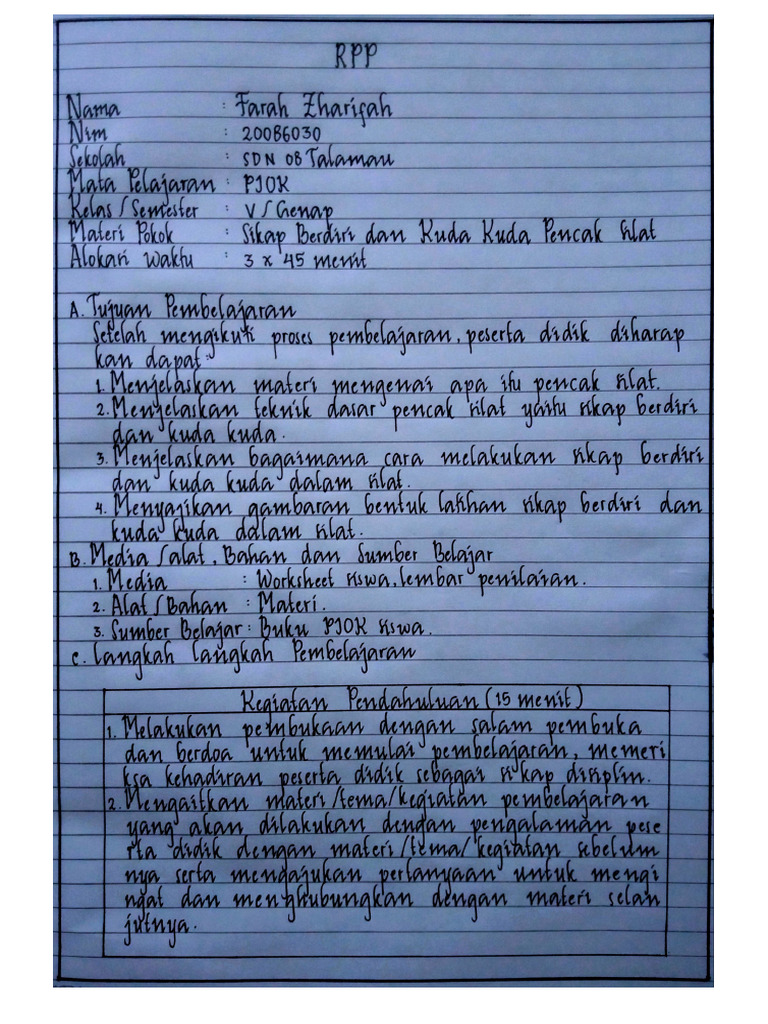 RPP
Nama : Farah Zharifah
Nim : 20086030
Sekolah : SDN 08 Talamau
Mata Pelajaran : PJOK
Kelas/Semester : V/Genap
Materi Pokok : Sikap Berdiri dan Kuda Kuda Pencak Silat
Alokasi Waktu : 3 x 45 menit
A. Tujuan Pembelajaran
Setelah mengikuti proses pembelajaran, peserta didik diharap
kan dapat:
1. Menjelaskan materi mengenai apa itu pencak silat.
2. Menjelaskan teknik dasar pencak silat yaitu sikap berdiri
dan kuda kuda.
3. Menjelaskan bagaimana cara melakukan sikap berdiri
dan kuda kuda dalam silat.
4. Menyajikan gambaran bentuk latihan sikap berdiri dan
kuda kuda dalam silat.
B. Media/alat, Bahan dan Sumber Belajar
1. Media : Worksheet siswa, lembar penilaian.
2. Alat/Bahan : Materi.
3. Sumber Belajar : Buku PJOK siswa.
C. Langkah Langkah Pembelajaran
Kegiatan Pendahuluan (15 menit)
1. Melakukan pembukaan dengan salam pembuka
dan berdoa untuk memulai pembelajaran, memeri
ksa kehadiran peserta didik sebagai sikap disiplin.
2. Mengaitkan materi/tema/kegiatan pembelajaran
yang akan dilakukan dengan pengalaman pese
rta didik dengan materi/tema/kegiatan sebelum
nya serta mengajukan pertanyaan untuk mengi
ngat dan menghubungkan dengan materi selan
jutnya.